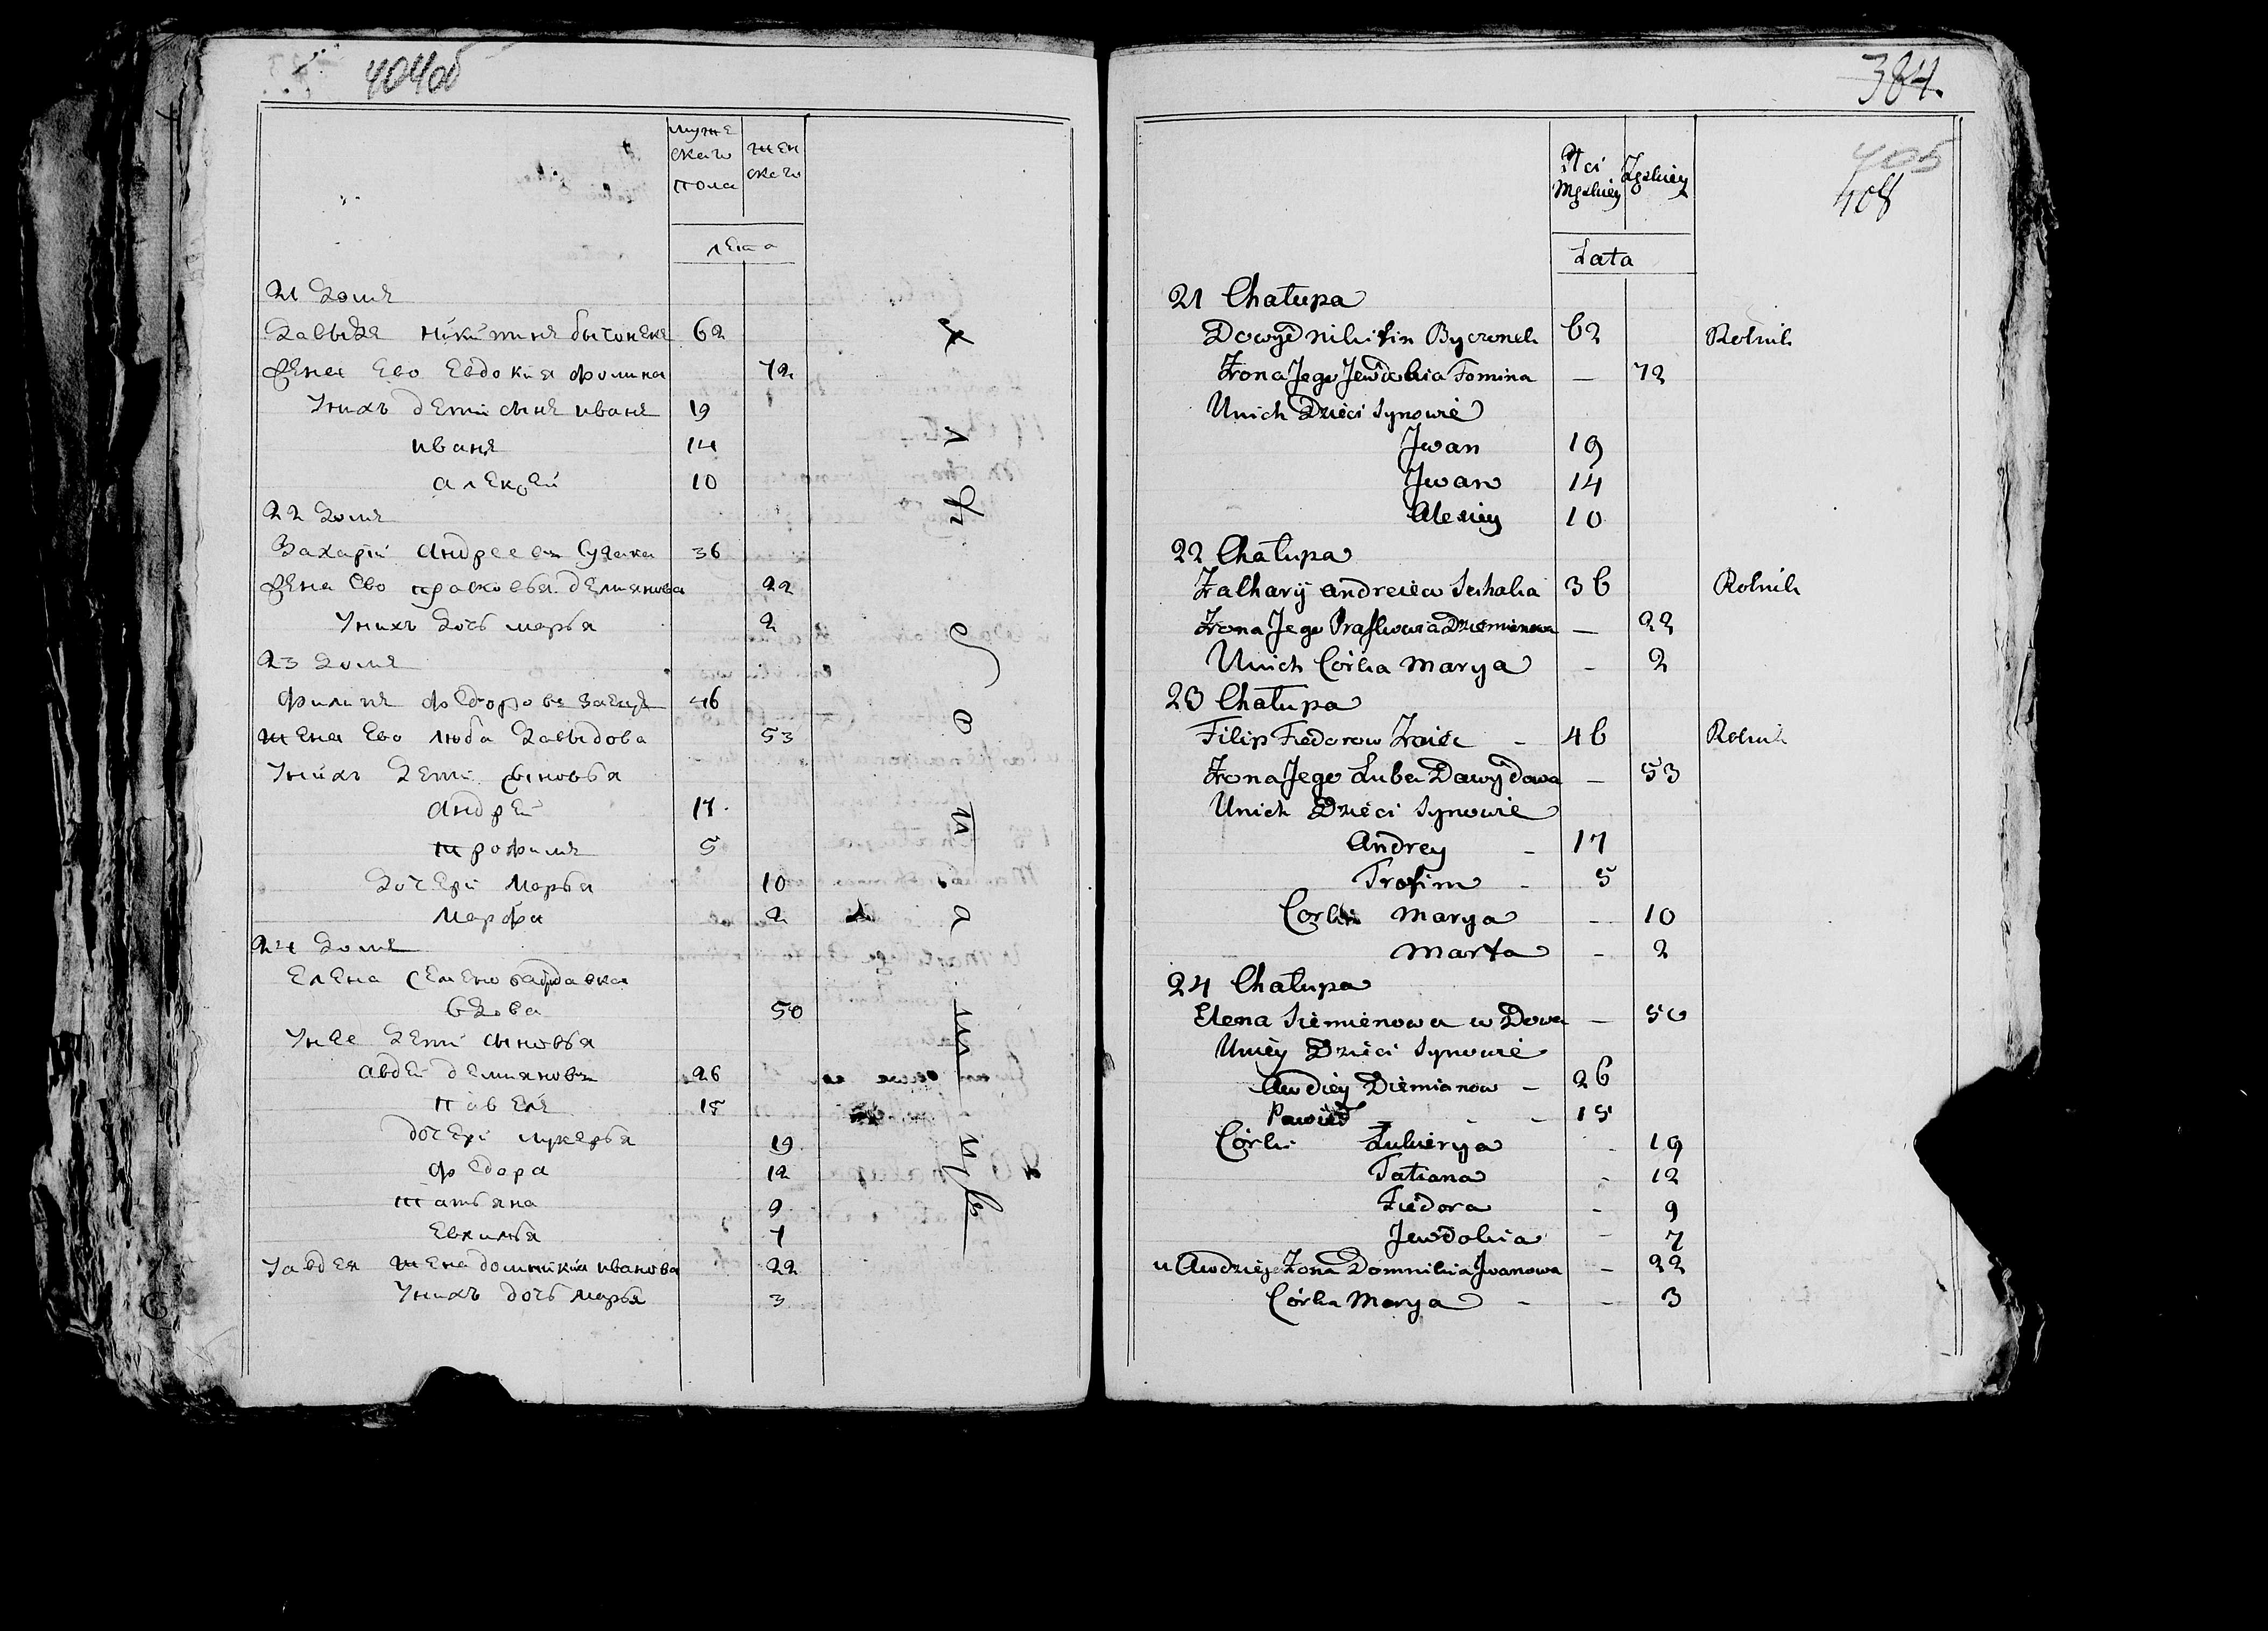 404об
муже
ского
пола
жен
ского
лета
21 домъ
Давыдъ Никитинъ бычонекъ 62
жена ево Евдокия фомина 72
Унихъ дети сынъ иванъ 19
иванъ 14
алексей 10
22 домъ
Захарiй андреевъ 36
жена Ево прасковья демянова 22
Унихъ дочь марья 2
23 домъ
филипъ федоровъ заецъ 46
жена Ево люба давыдова 53
Унихъ дети сыновья
андрей 17
трофимъ 5
дочери марья 10
марфа 2
24 домъ
Елена семенова
вдова 50
Унее дети сыновья
авдей демяновъ 26
павелъ 15
дочерi лукерья 19
федора 12
татьяна 9
7
Уавдея жена домникия иванова 22
Унихъ дочь марья 3
хлебопашцы
384.
405
408
Płci
Męskiey
Żeńskiey
Lata
21 Chałupa
Dowyd Nikitin Byczonek 62 Rolnik
Żona Jego Jewdokia Fomina — 72
Unich Dzieci Synowie
Jwan 19
Jwan 14
Alexiey 10
22 Chałupa
Zakhary Andreiew 36 Rolnik
Żona Jego Praskowia Dziemianowa — 22
Unich Córka Marya – 2
23 Chałupa
Filip Fiedorow Zaiec – 46 Rolnik
Żona Jego Luba Dawydowa — 53
Unich Dzieci Synowie
Andrey – 17
Trofim – 5
Corki Marya – 10
Marta – 2
24 Chałupa
Elena Siemienowa wDowa — 50
Uniey Dzieci Synowie
Awdiey Diemianow – 26
Paweł – 15
Córki Lukierya – 19
Tatiana – 12
Fiedora – 9
Jewdokia – 7
u Awdzieja Żona Domnikia Jwanowa – 22
Córka Marya – – 3